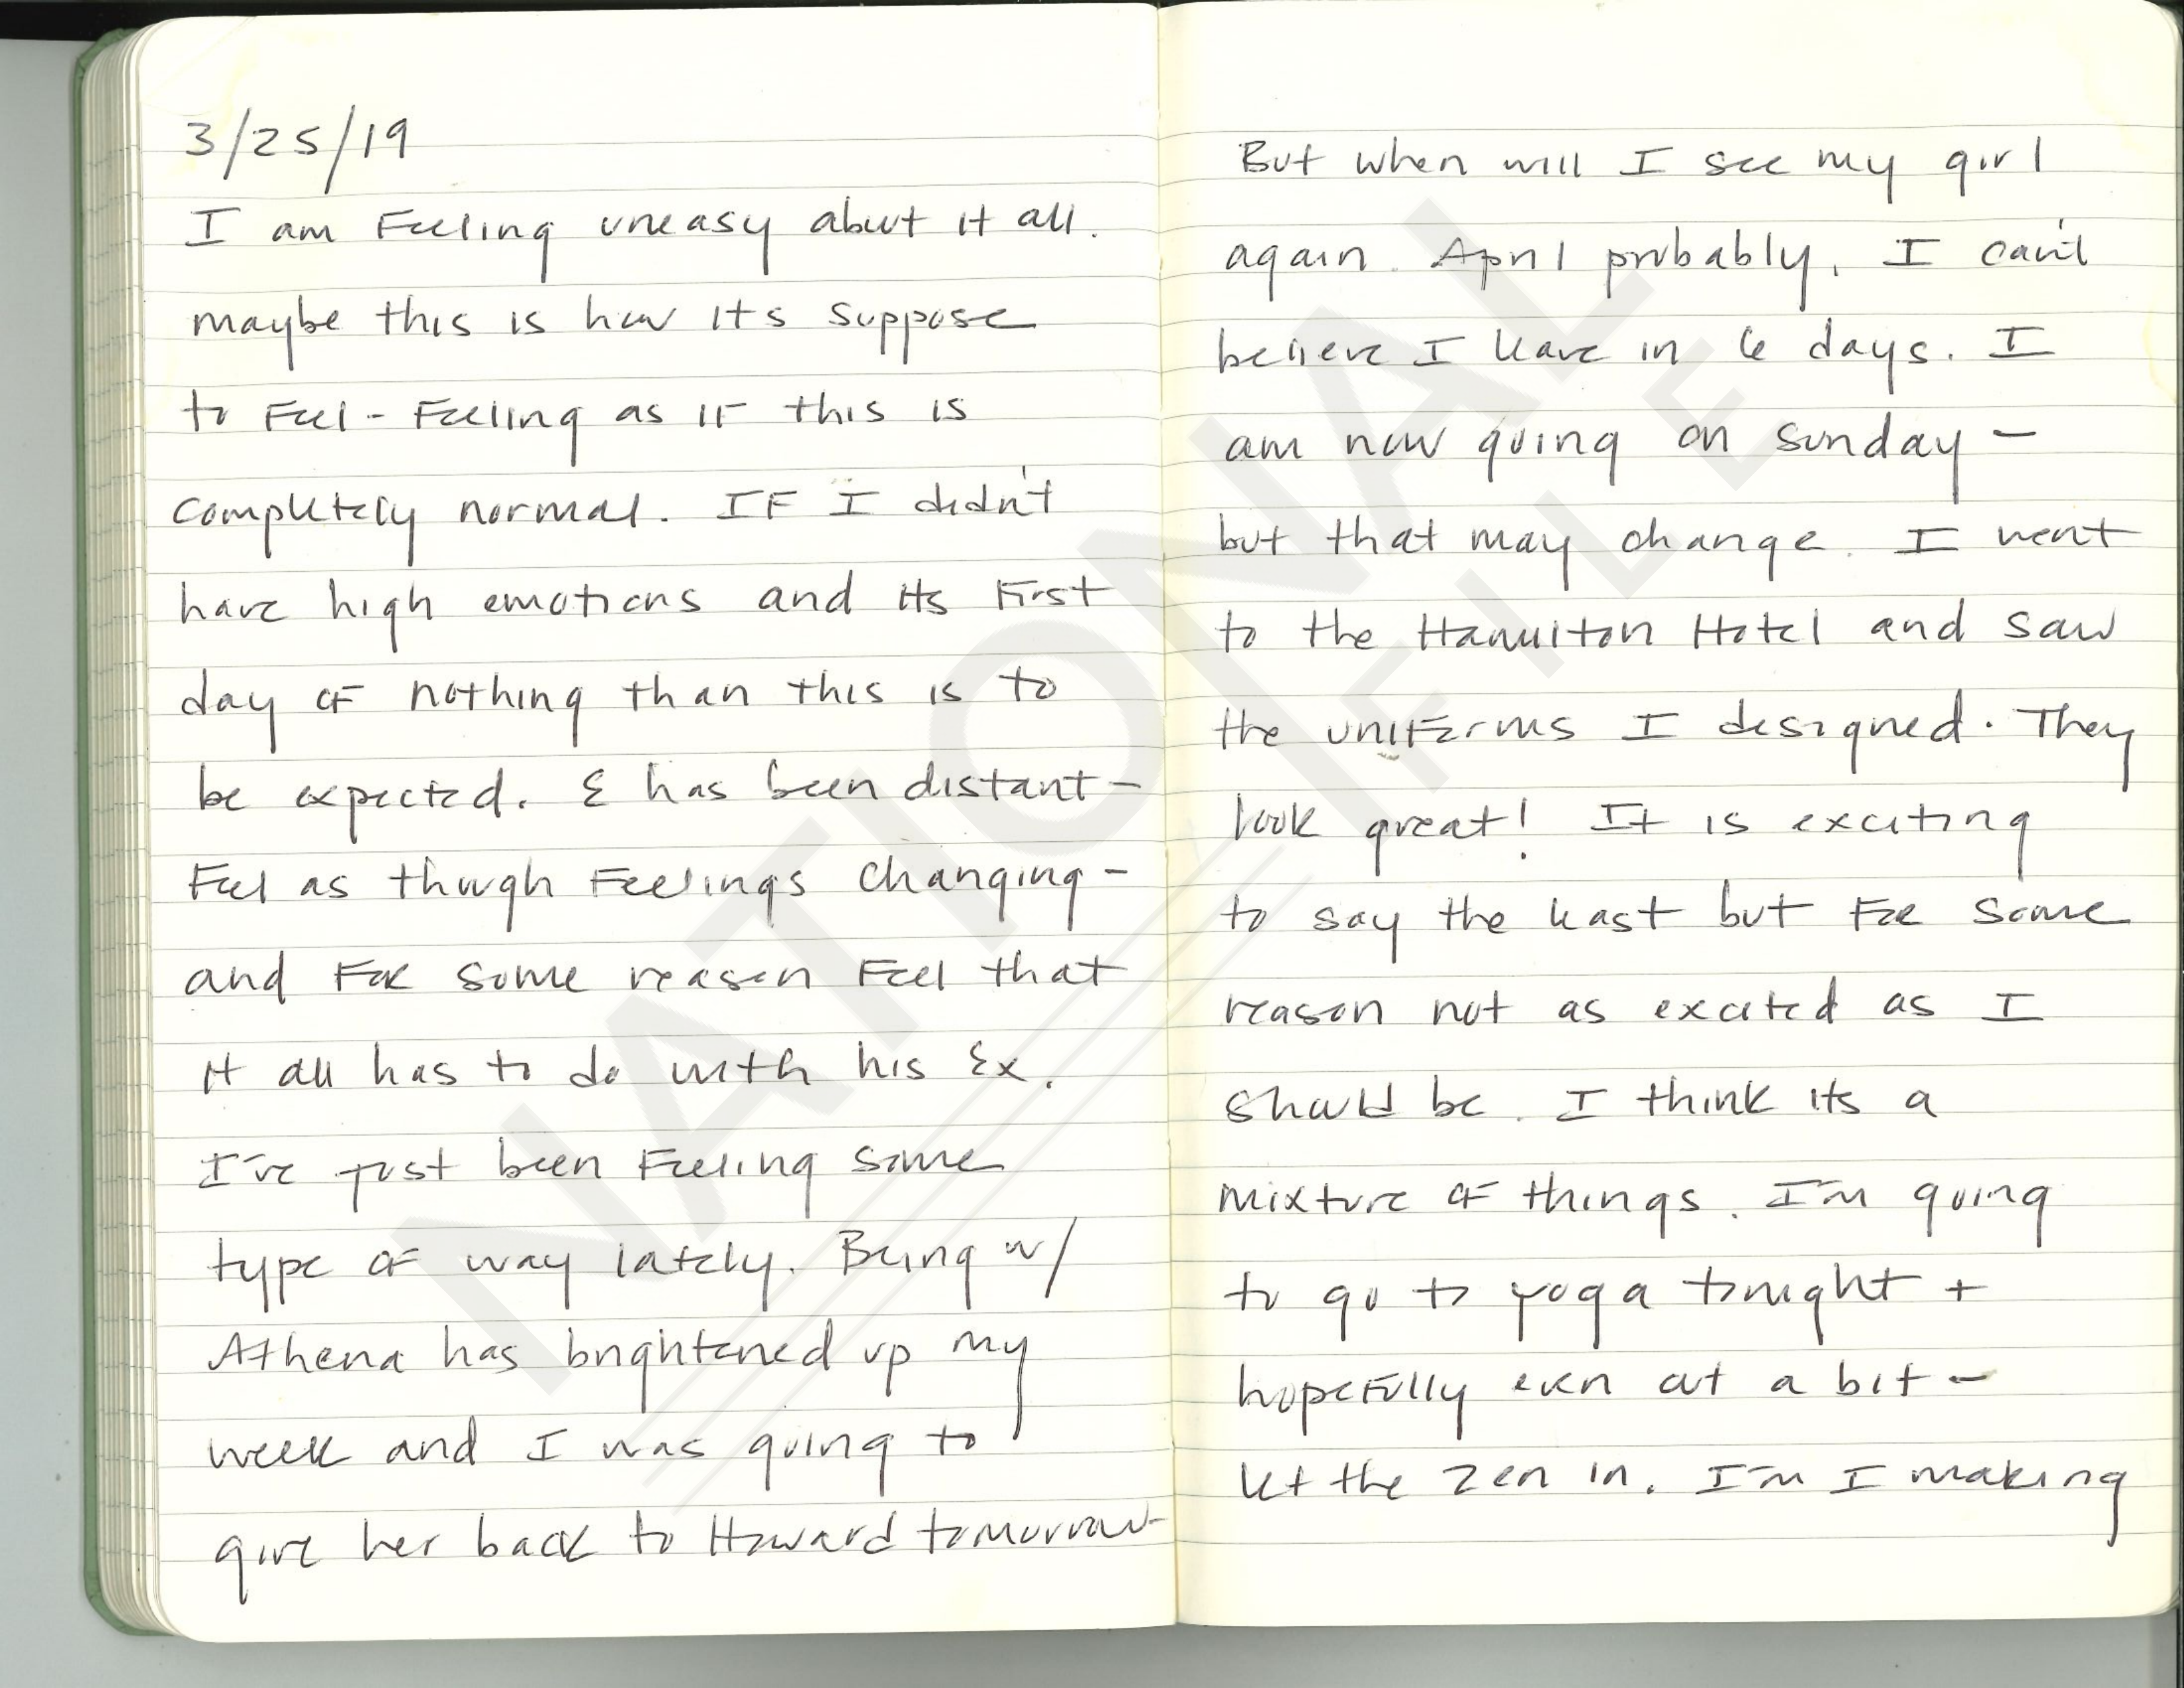 3/25/19
I am Feeling uneasy about it all.
maybe this is how its suppose
to Feel - Feeling as IF this is
completely normal. IF I didn't
have high emotions and its First
day oF nothing than this is to
be expected. E has been distant -
Feel as though Feelings changing -
and FOR some reason Feel that
it all has to do with his Ex.
I've just been Feeling some
type oF way lately. Being w/
Athena has brightened up my
week and I was going to
give her back to Howard tomorrow
But when will I see my girl
again. April probably. I can't
believe I leave in 6 days. I
am now going on Sunday -
but that may change. I went
to the Hamilton Hotel and saw
the uniForms I designed. They
look great! It is exciting
to say the least but FOR some
reason not as excited as I
should be. I think its a
mixture oF things. I'm going
to go to yoga tonight +
hopeFully even out a bit -
let the zen in. I'm I making
NATIONAL
FILE